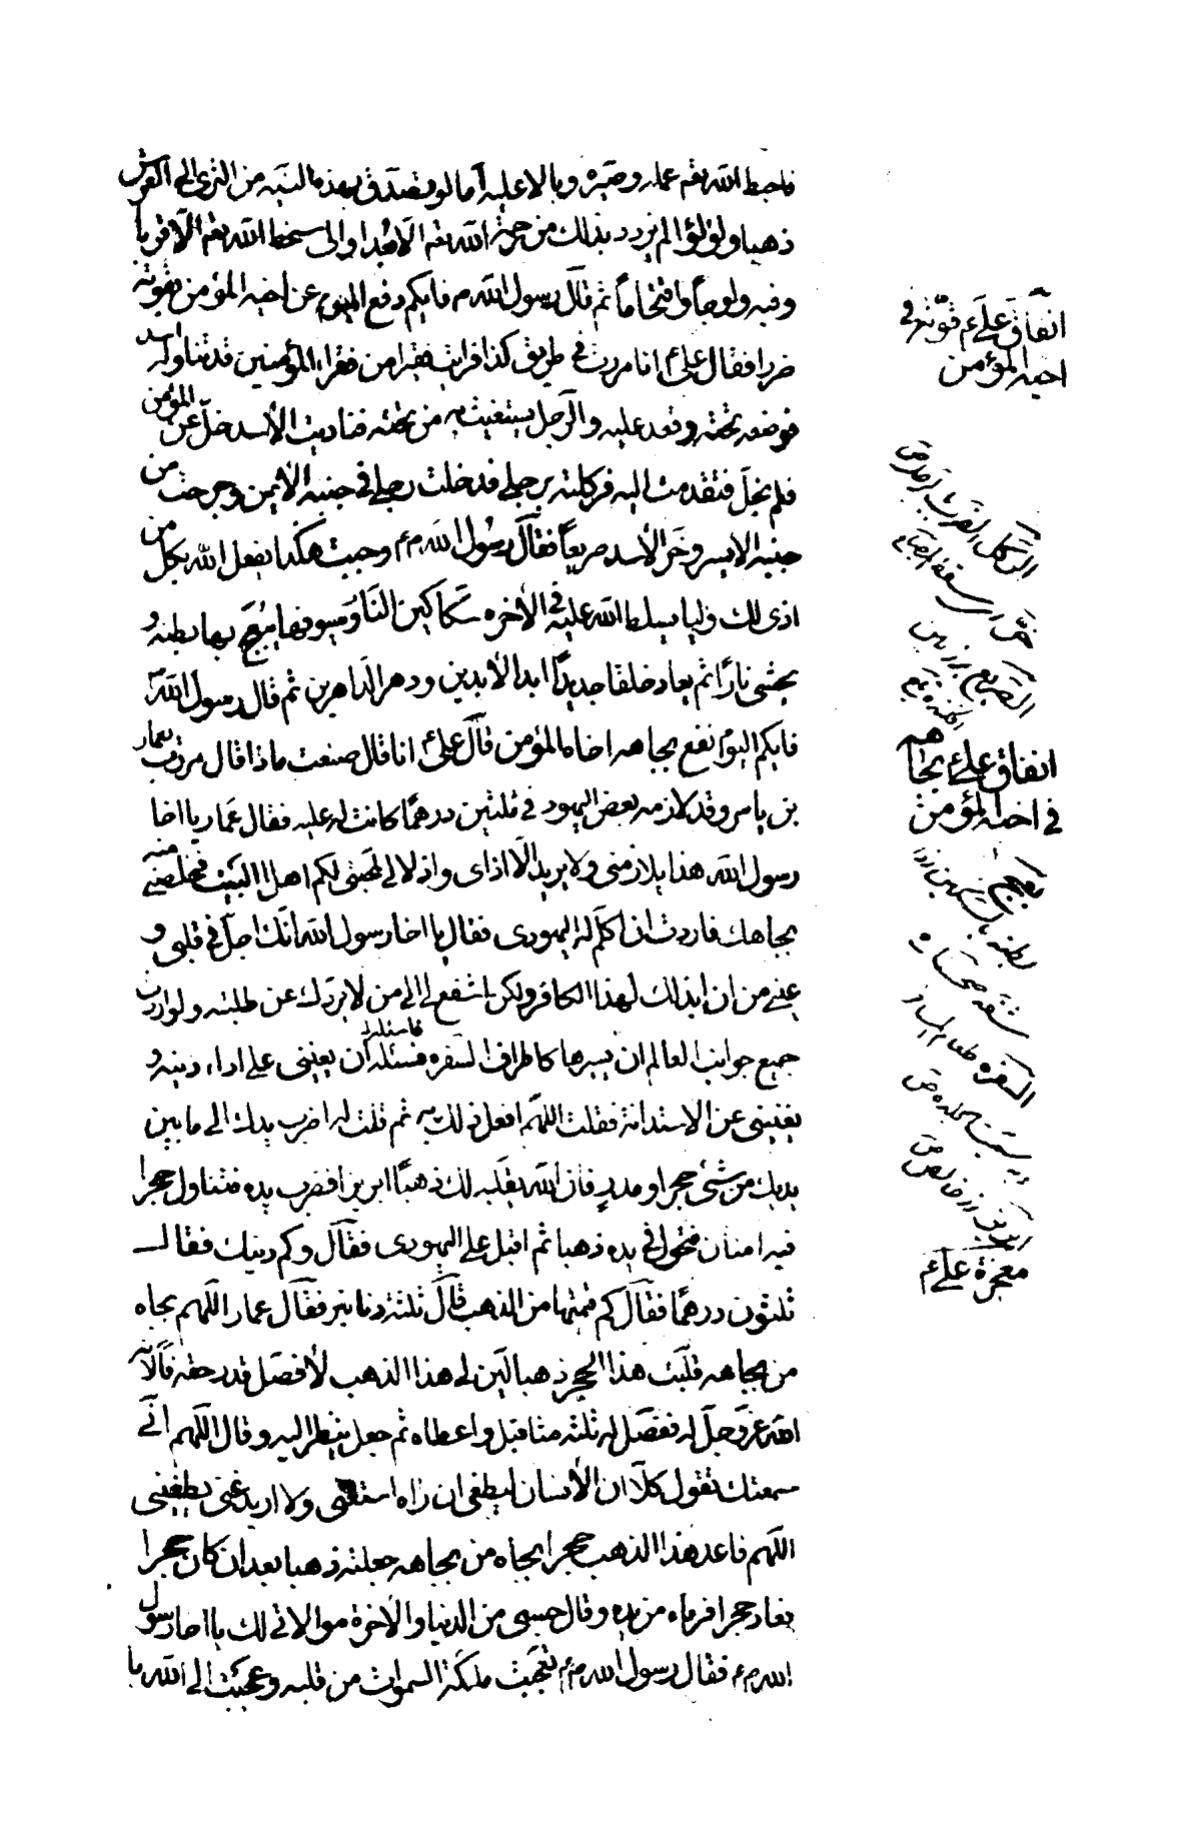 فاحبط الله تعم عمله وصيره وبالا عليه أما لو تصدق بهذه النية من الثرى الى العرش
ذهبا ولؤلؤا لم يزدد بذلك من رحمة الله تعم الا بعدا والى سخط الله تعم الا قربا
وفيه ولوجا واقتحاما ثم قال رسول الله م فايكم دفع اليوم عن اخيه المؤمن بقوته
ضررا فقال على ع انا مررت في طريق كذا فرايت فقيرا من فقراء المؤمنين قد تناوله اسد
فوضعه تحته وقعد عليه والرجل يستغيث به من تحته فناديت الأسد خل عن المؤمن
فلم يخل فتقدمت اليه فركلته برجلي فدخلت رجلي في جنبه الأيمن وخرجت من
جنبه الايسر وخر الأسد صريعا فقال رسول الله م م وجبت هكذا يفعل الله بكل من
اذى لك وليا يسلط الله عليه في الأخره سكاكين النار وسيوفها يبعج بها بطنه و
يحشى نارا ثم يعاد خلقا جديدا ابد الأبدين ودهر الداهرين ثم قال رسول الله م
فايكم اليوم نفع بجاهه اخاه المؤمن قال على ع انا قال صنعت ماذا قال مررت بعمار
بن ياسر وقد لازمه بعض اليهود في ثلثين درهما كانت له عليه فقال عمار يا اخا
رسول الله هذا يلازمنى ولا يريد الا اذاى واذلالي لمحبتى لكم اهل البيت فخلصني منه
بجاهك فاردت ان اكلم له اليهودى فقال يا اخا رسول الله انك اجل في قلبى و
عينى من ان ابذلك لهذا الكافر ولكن اشفع لي الى من لا يردك عن طلبته ولو اردت
جميع جوانب العالم ان يسيرها كاطراف السفره فسئله فاسئله ان يعيننى على اداء دينه و
يغنينى عن الاستدانة فقلت اللهم افعل ذلك به ثم قلت له اضرب بيدك الى ما بين
يديك من شئ حجر او مدر فان الله يقلبه لك ذهبا ابريزا فضرب يده فتناول حجرا
فيه امنان فتحول في يده ذهبا ثم اقبل على اليهودى فقال وكم دينك فقال
ثلثون درهما فقال كم قيمتها من الذهب قال ثلثة دنانير فقال عمار اللهم بجاه
من بجاهه قلبت هذا الحجر ذهبا لين لى هذا الذهب لأفصل قدر حقه فالانه
الله عز وجل له ففصل له ثلثه مثاقيل واعطاه ثم جعل ينظر اليه وقال اللهم انى
سمعتك تقول كلا ان الأنسان ليطغى ان راه استغنى ولا اريد غنى يطغينى
اللهم فاعد هذا الذهب حجرا بجاه من بجاهه جعلته ذهبا بعد ان كان حجرا
فعاد حجرا فرماه من يده وقال حسبى من الدنيا والأخرة موالاتى لك يا اخا رسول
الله م م فقال رسول الله م م فتعجبت ملئكة السموات من قلبه وعجت الى الله يا
انفاق على ع قوته في
اخيه المؤمن
الركل الضرب برجل ص
الصريع
انفاق على ع بجاهه
في اخيه المؤمن
يبعج
بطنه بالسكين
شقه
السفره طعام المسافر
معجزة على ع